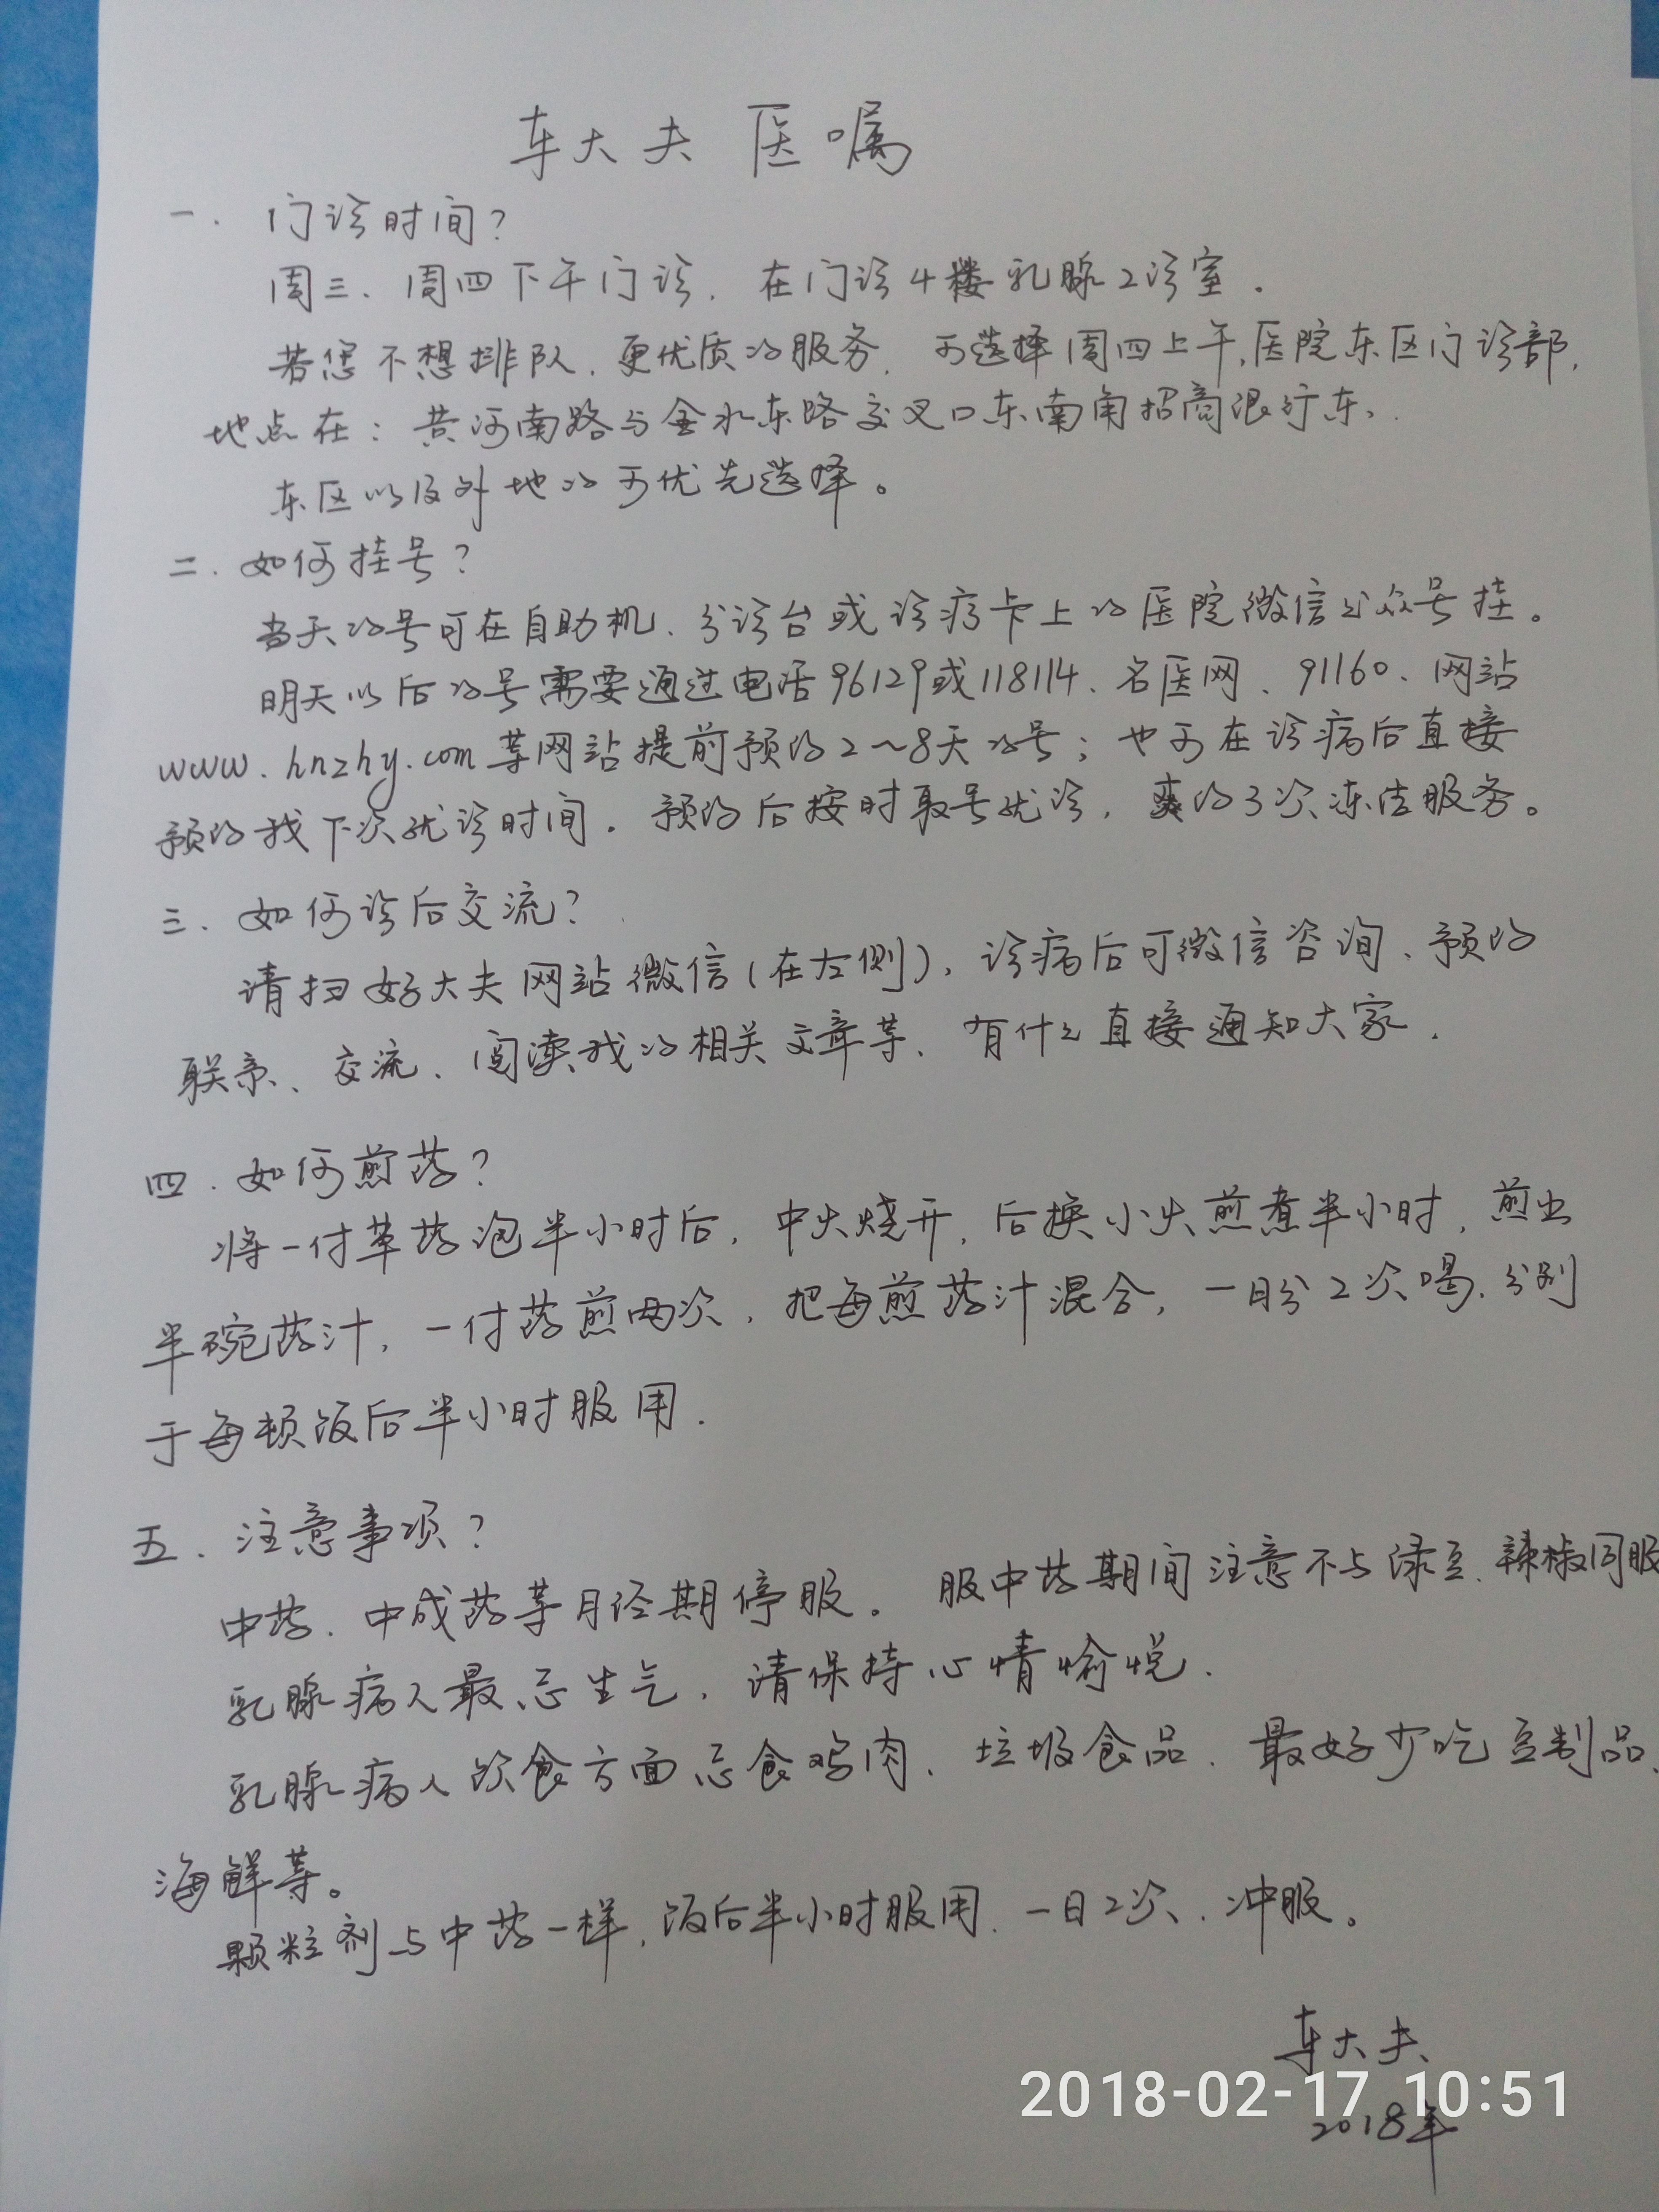 车大夫 医嘱
一. 门诊时间?
周三、周四下午门诊. 在门诊4楼乳腺2诊室.
若您不想排队. 更优质的服务. 可选择周四上午,医院东区门诊部,
地点在: 黄河南路与金水东路交叉口东南角招商银行东、
东区以及外地的可优先选择。
二. 如何挂号?
当天的号可在自助机、分诊台或诊疗卡上的医院微信公众号挂。
明天以后的号需要通过电话96129或118114、名医网、91160、网站
www.hnzhy.com等网站提前预约2~8天的号; 也可在诊病后直接
预约我下次就诊时间. 预约后按时取号就诊, 爽约3次冻结服务。
三. 如何诊后交流?
请扫好大夫网站微信(在左侧), 诊病后可微信咨询、预约
联系、交流、阅读我的相关文章等、有什么直接通知大家.
四. 如何煎药?
将一付草药泡半小时后, 中火烧开, 后换小火煎煮半小时, 煎出
半碗药汁, 一付药煎两次, 把每煎药汁混合, 一日分2次喝. 分别
于每顿饭后半小时服用.
五. 注意事项?
中药. 中成药等月经期停服。 服中药期间注意不与绿豆. 辣椒同服
乳腺病人最忌生气, 请保持心情愉悦.
乳腺病人饮食方面忌食鸡肉、垃圾食品. 最好少吃豆制品、
海鲜等。
颗粒剂与中药一样, 饭后半小时服用. 一日2次. 冲服。
车大夫
2018-02-17 10:51
2018年